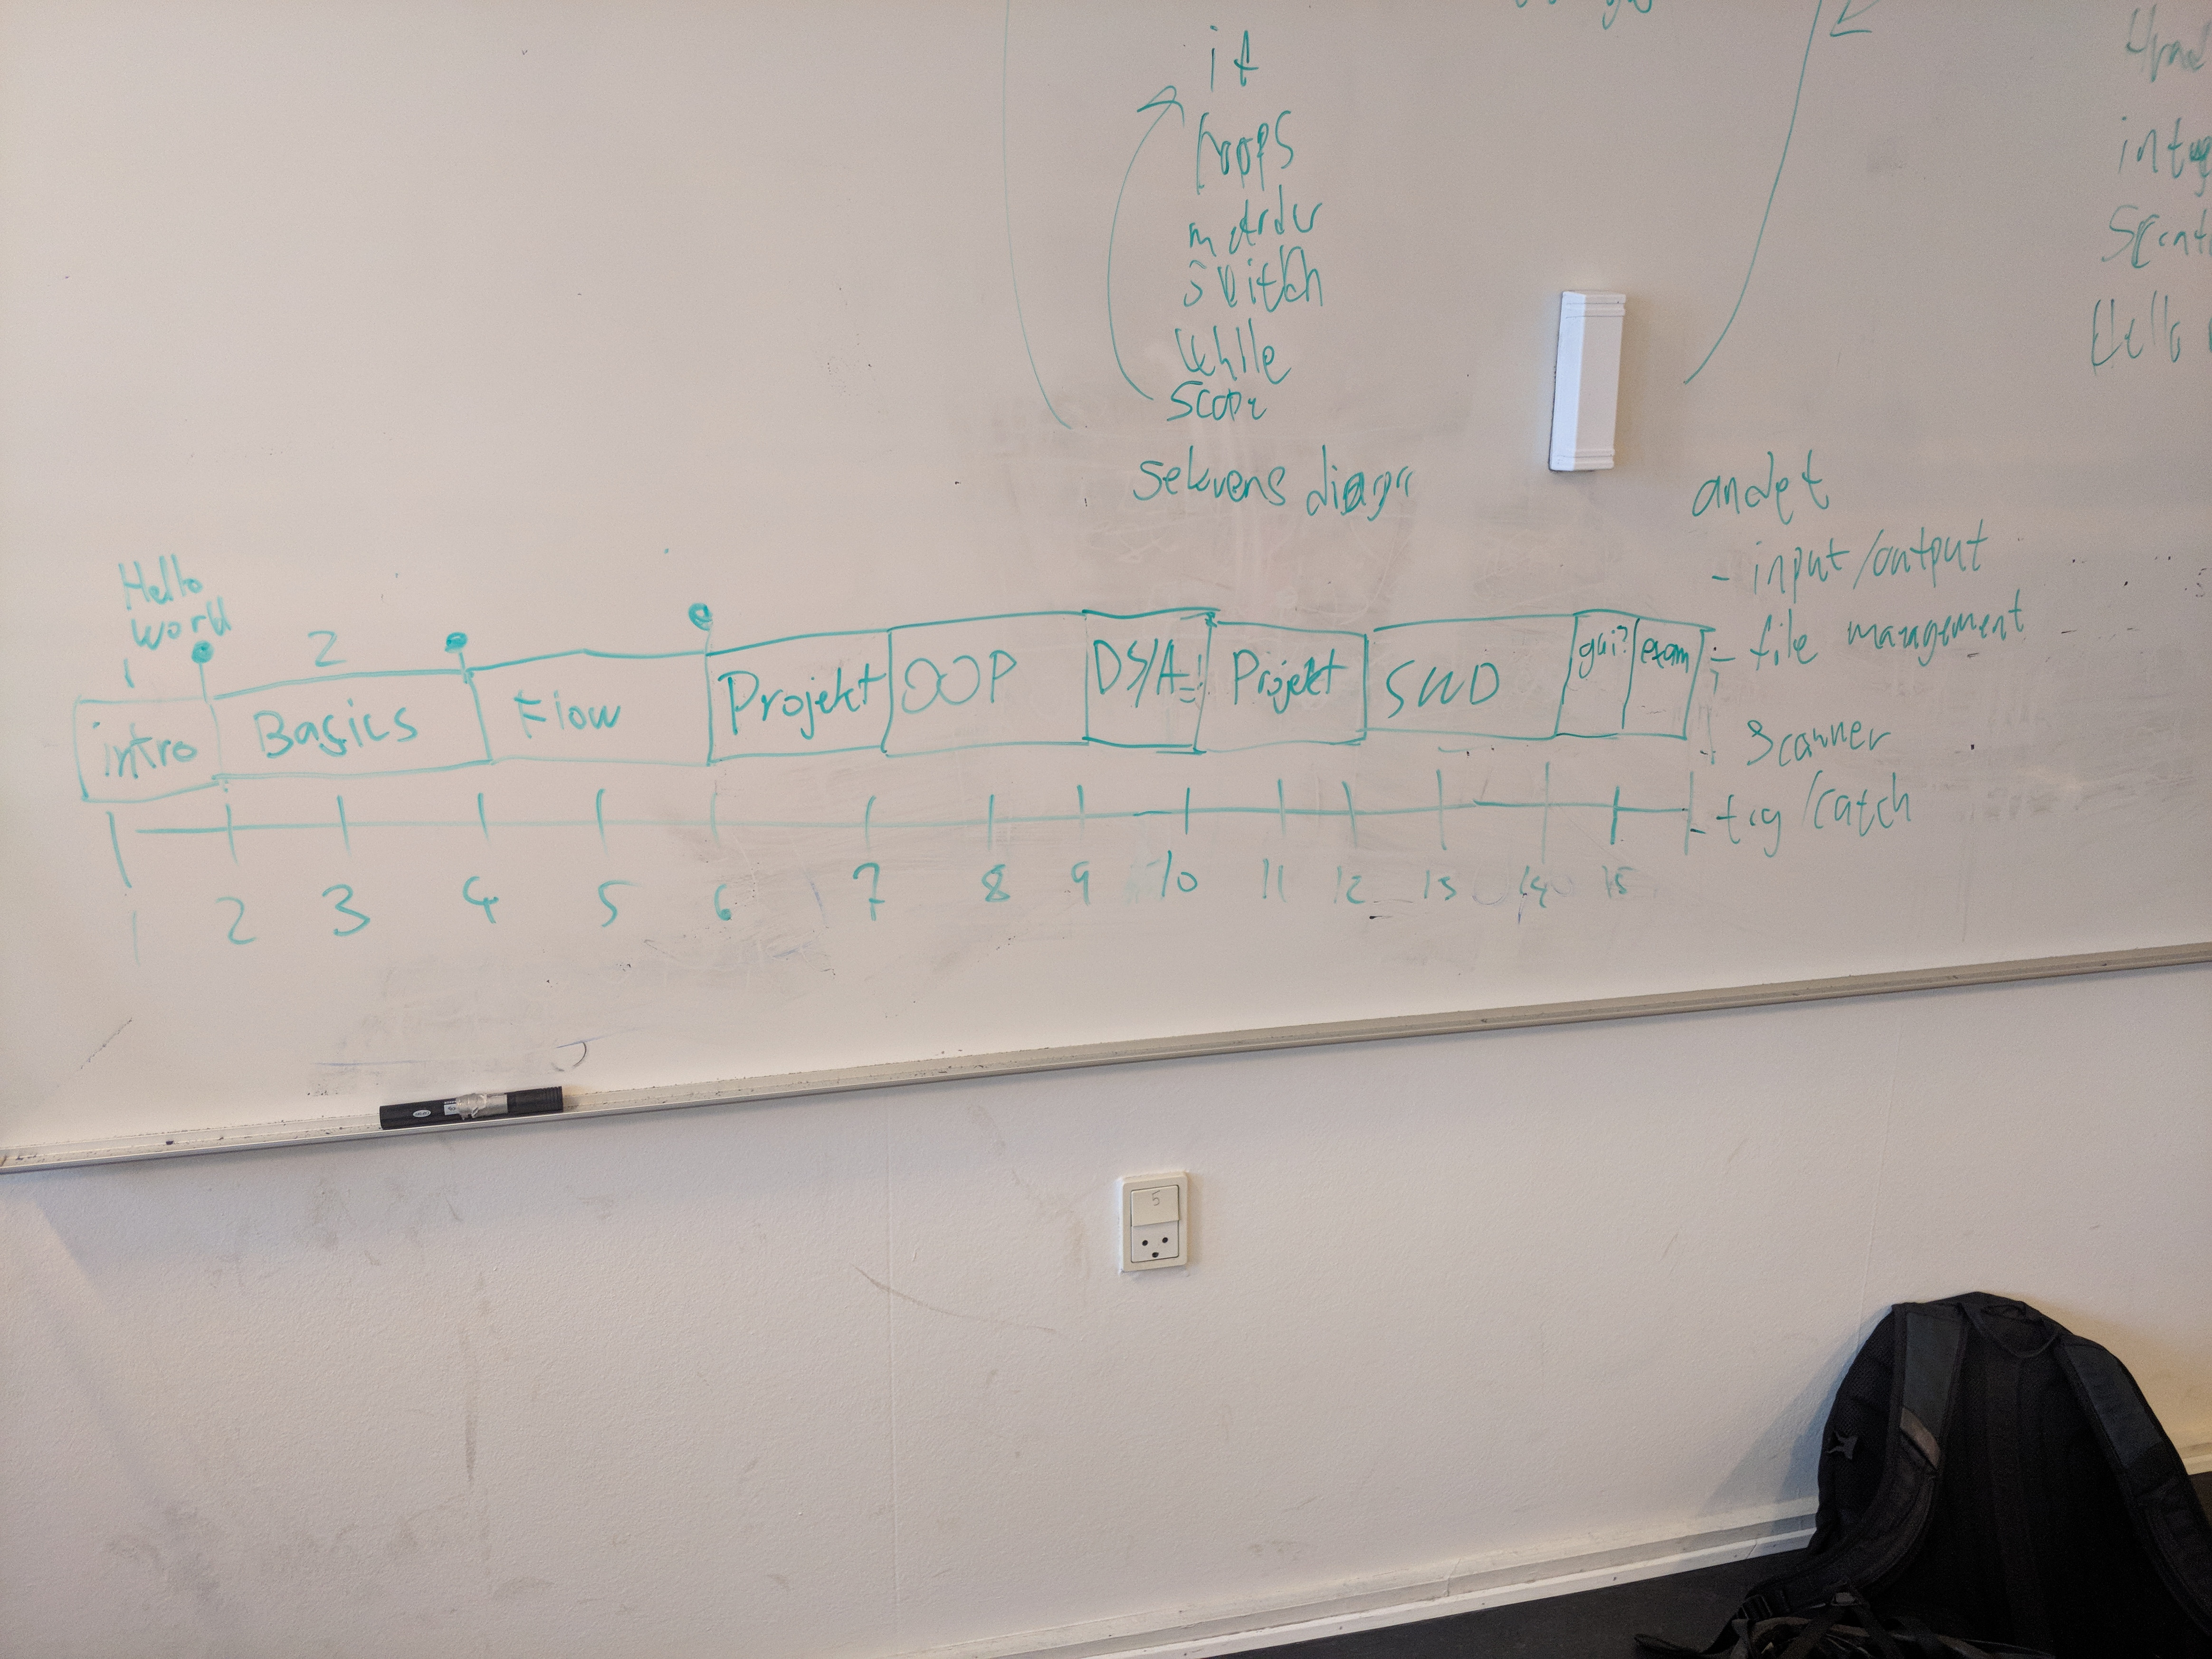 if
loops
metoder
switch
while
scope
sekvens diagr
Hello
andet
- input/output
- file management
- Scanner
- try/catch
Hello
World
1
2
intro
Basics
Flow
Projekt
OOP
DS/A
Projekt
SWD
gui?
exam
1 2 3 4 5 6 7 8 9 10 11 12 13 14 15
5